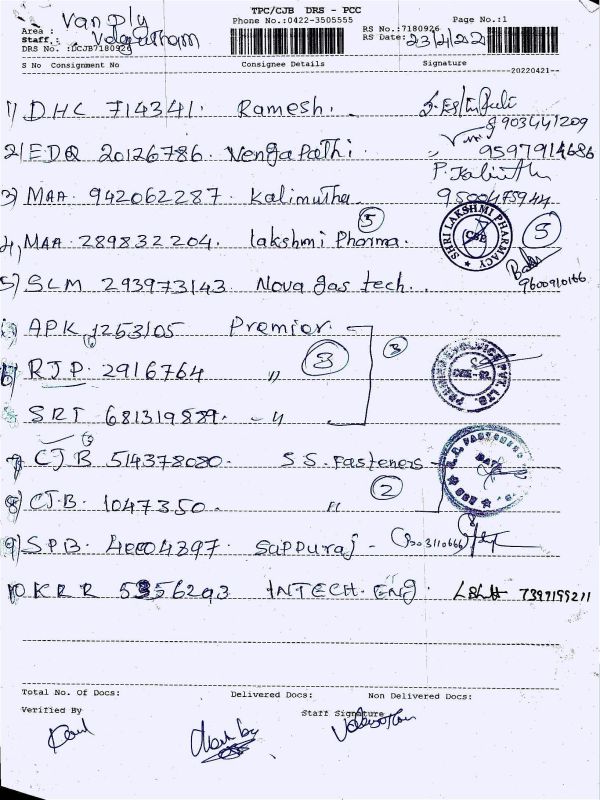 TPC/CJB DRS - PCC
Phone No.:0422-3505555
Page No.:1
Area : Van Ply
Staff.:
DRS No. :DCJB7180926
RS No.:7180926
RS Date: 23/4/22
S No Consignment No Consignee Details Signature
20220421
1) DHC 714341. Ramesh.
903441209
2) EDQ 20126786. Vengapathi.
9597914686
3) MAA. 942062287. Kalimutha.
9500475944
5
4) MAA 289832204. lakshmi Pharma.
SHRI LAKSHMI PHARMACY CBE
5
5) SLM 293973143 Nova gas tech.
9600910166
APK 1253105 Premier.
RJP. 2916764 "
3
3
SRT 681319839. - "
7) CJB 514378080. S S. Fasteners
8) CJB. 1047350. "
2
9) SPB. 4EC04397 Sappuraj -
10. KRR 5356293 INTECH. ENG. 7397199211
Total No. Of Docs: Delivered Docs: Non Delivered Docs:
Verified By Staff Signature